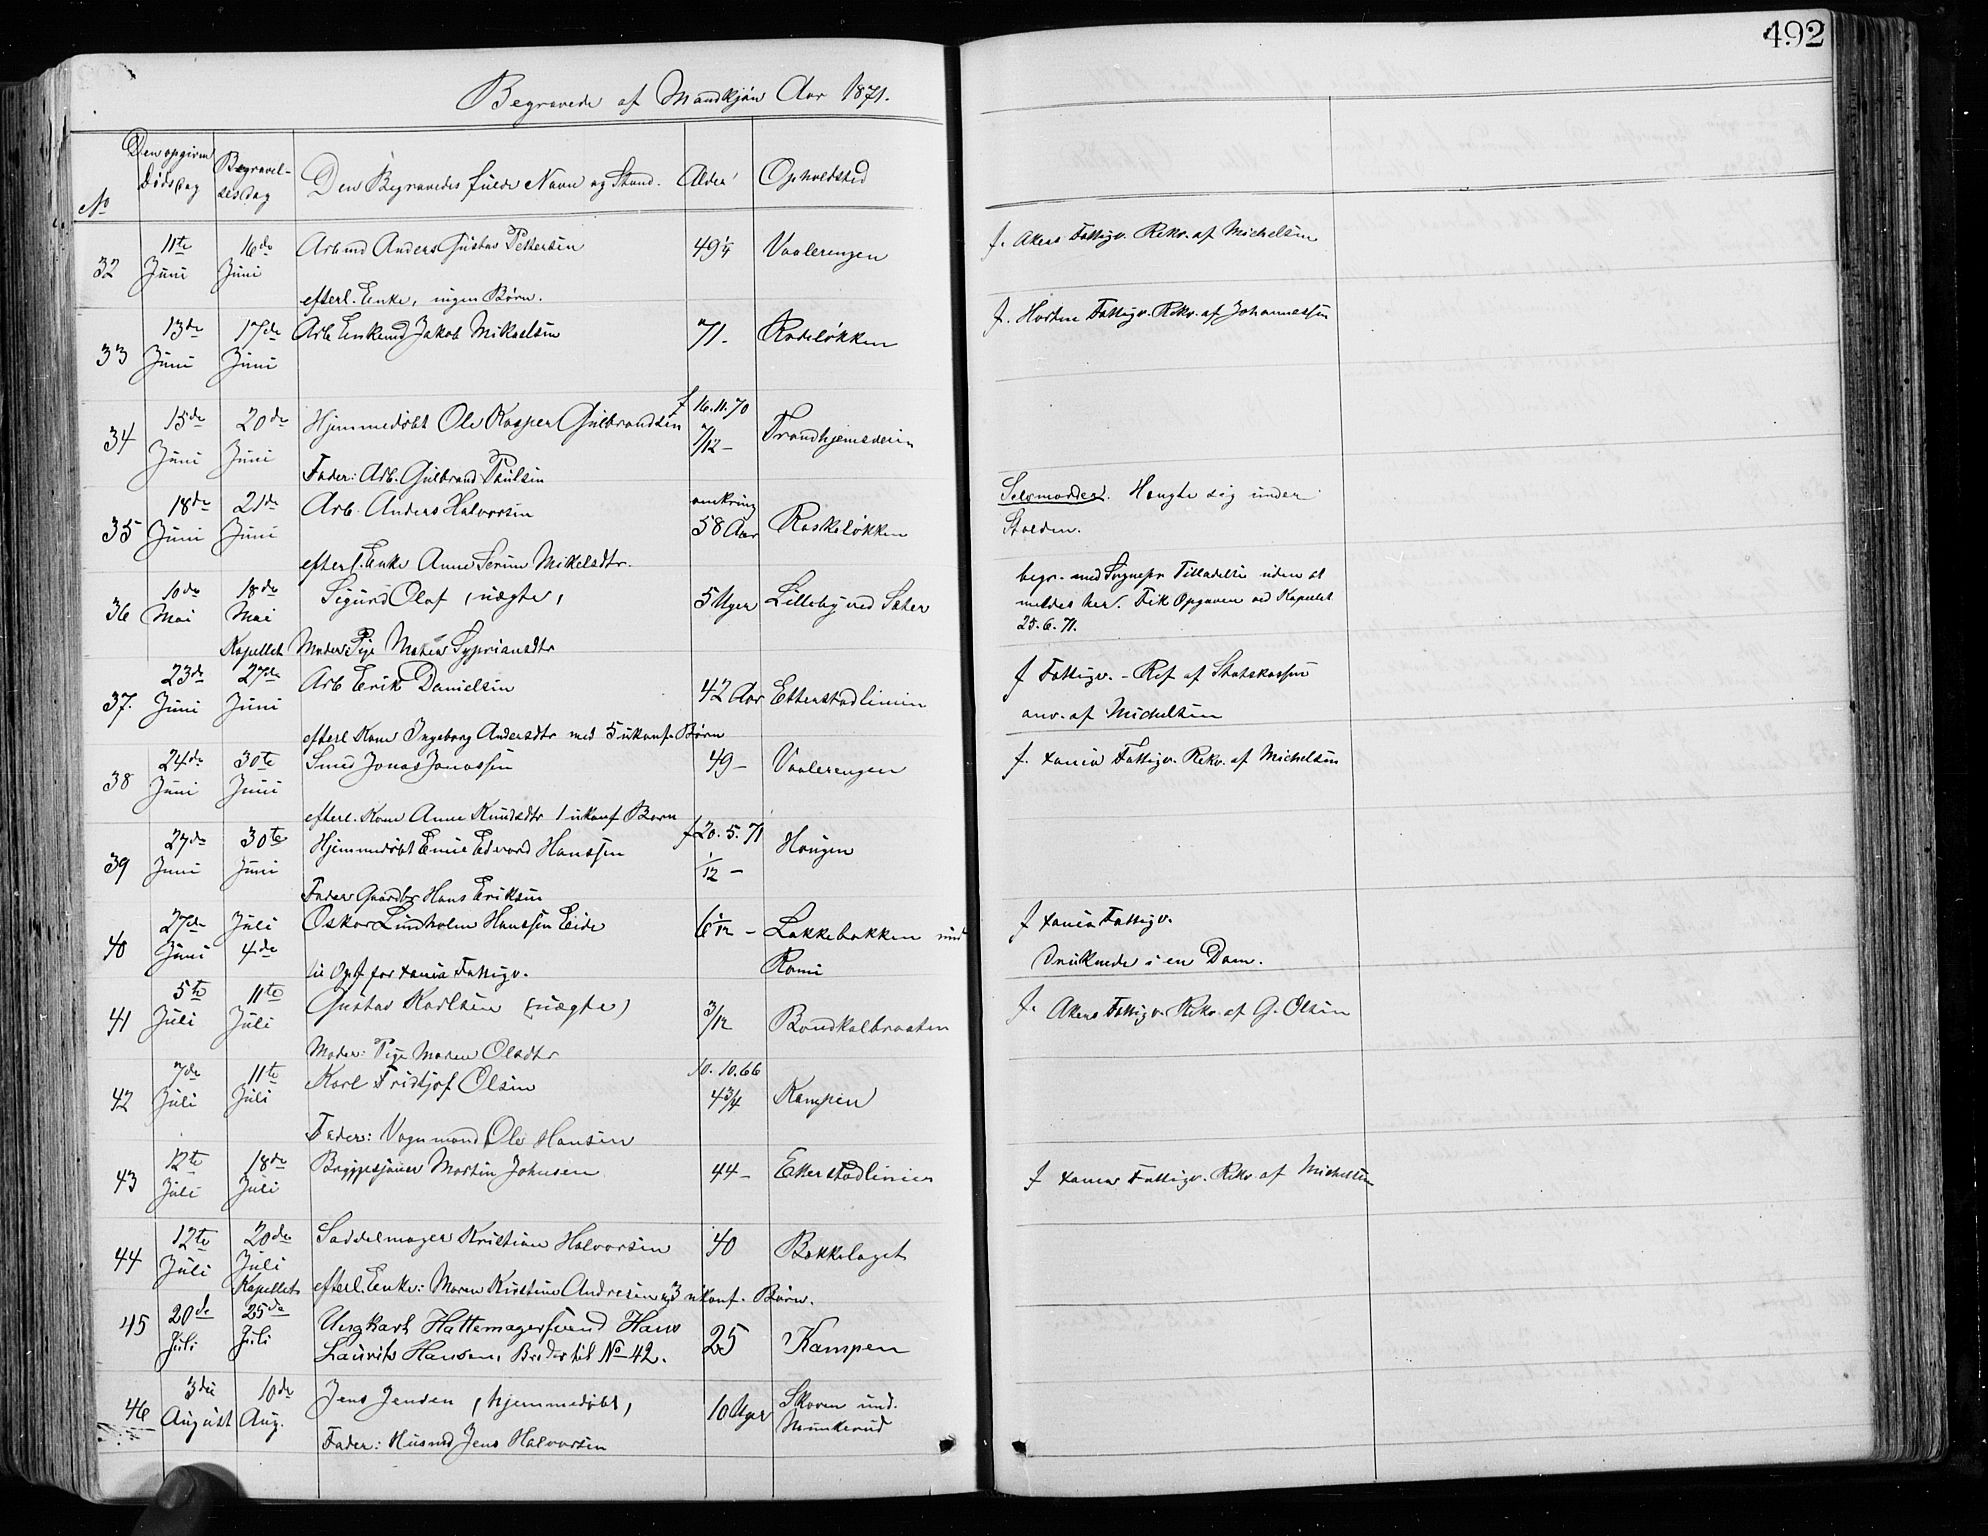 492
Begravede af Mandkjøn Aar 1871.
No
Den opgivne Dødsdag
Begravelsesdag
Den Begravedes fulde Navn og Stand.
Alder
Opholdsted
32
11te Juni
16de Juni
Arbmd Anders Gustav Pettersen
49 1/4
Vaalerengen
f. Akers Fattigv. Rekv. af Michelsen
efterl. Enke, ingen Børn.
33
13de Juni
17de Juni
Arb. Enkemd Jakob Mikaelsen
71.
Rodeløkken
f. Horten Fattigv. Rekv. af Johannessen
34
15de Juni
20de Juni
Hjemmedøbt Ole Kasper Gulbrandsen
f 16.11.70
7/12 -
Trondhjemsveien
Fader: Arb. Gulbrand Paulsen
35
18de Juni
21de Juni
Arb. Anders Halvorsen
omkring
58 Aar
Raskeløkken
Selvmorder. Hængte sig under
Stolden.
efterl. Enke Anne Serine Mikelsdtr.
36
10de Mai
18de Mai
Kapellet
Sigurd Olaf (uægte)
5 Uger
Lilleby ved Sæter
begr. med Sognepr Tilladelse uden at
meldes her. Fik Opgaven ved Kapellet
25.6.71.
Moder Pige Sypriansdtr
37.
23de Juni
27de Juni
Arb Erik Danielsen
42 Aar
Etterstadlinien
f Fattigv. - Ref af Statskassen
anv. af Michelsen
efterl Kone Ingeborg Andersdtr med 5 ukonf. Børn
38
24de Juni
30te Juni
Smed Jonas Jonassen
49 -
Vaalerengen
f. Xania Fattigv. Rekv. af Michelsen
efterl. Kone Anne Knudsdtr 1 ukonf Barn
39
27de Juni
30te Juni
Hjemmedøbt Emil Edvard Hanssen
f 20.5.71
1/12 -
Haugen
Fader Gaardbr Hans Eriksen
40
27de Juni
Juli 4de
Oskar Lindholm Hanssen Eide
6 1/12 -
Lakkebakken und
Romi
f Xania Fattigv.
Druknede i en Dam.
til Opf for Xania Fattigv.
41
5te Juli
11te Juli
Gustav Karlsen (uægte)
3/12
Bondkalbraaten
f. Akers Fattigv. Rekv. af G. Olsen
Moder: Pige Maren Olsdtr
42
7de Juli
11te Juli
Karl Fridtjof Olsen
10.10.66
4 3/4
Kampen
Fader: Vognmand Ole Hansen
43
12te Juli
18de Juli
Bryggesjouer Martin Johnsen
44 -
Etterstadlinien
f Xanias Fattigv. Rekv. af Michelsen
44
12te Juli
20de Juli
Kapellet
Saddelmager Kristian Halvorsen
40
Bækkelaget
efterl. Enke: Maren Kirstine Andresen og 3 ukonf. Børn.
45
20de Juli
25de Juli
Ungkarl Hattemagersvend Hans
Laurits Hansen, Broder til No 42.
25
Kampen
46
3die August
10de Aug.
Jens Jensen (hjemmedøbt)
10 Uger
Skoven und.
Munkerud
Fader: Husmd Jens Halvorsen